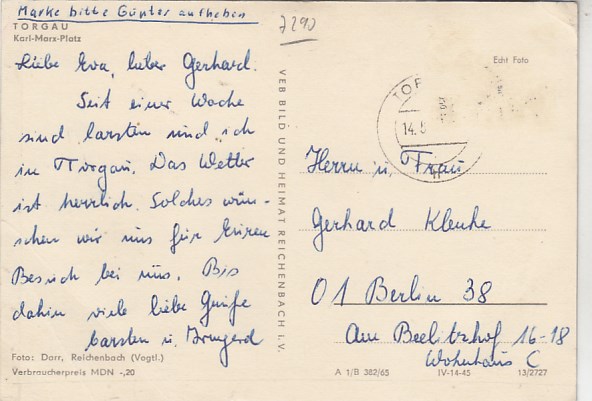 Marke bitte Günter aufheben
TORGAU
Karl-Marx-Platz
Liebe Eva, lieber Gerhard.
Seit einer Woche
sind Carsten und ich
in Torgau. Das Wetter
ist herrlich. Solches wün-
schen wir uns für Euren
Besuch bei uns. Bis
dahin viele liebe Grüße
Carsten u.
Foto: Darr, Reichenbach (Vogtl.)
Verbraucherpreis MDN -,20
VEB BILD UND HEIMAT REICHENBACH I. V.
Echt Foto
TOR
14.
Herrn u. Frau
Gerhard
01 Berlin 38
Am Beelitzhof 16-18
Wohnhaus C
A 1/B 382/65
IV-14-45
13/2727